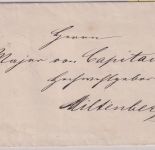 Herrn
Major von Capitai
Hochwohlgebor
Miltenber